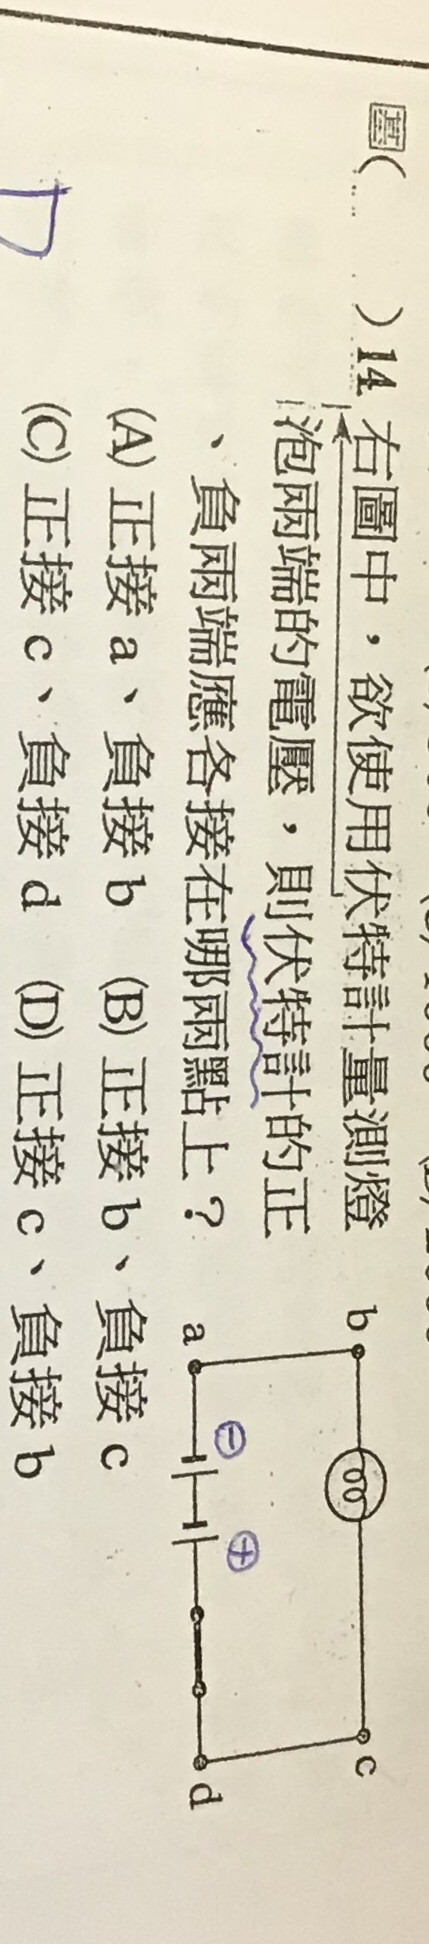 基( )14. 右圖中，欲使用伏特計量測燈
泡兩端的電壓，則伏特計的正
、負兩端應各接在哪兩點上？
(A) 正接 a、負接 b (B) 正接 b、負接 c
(C) 正接 c、負接 d (D) 正接 c、負接 b
D
b
c
a
⊖
⊕
d